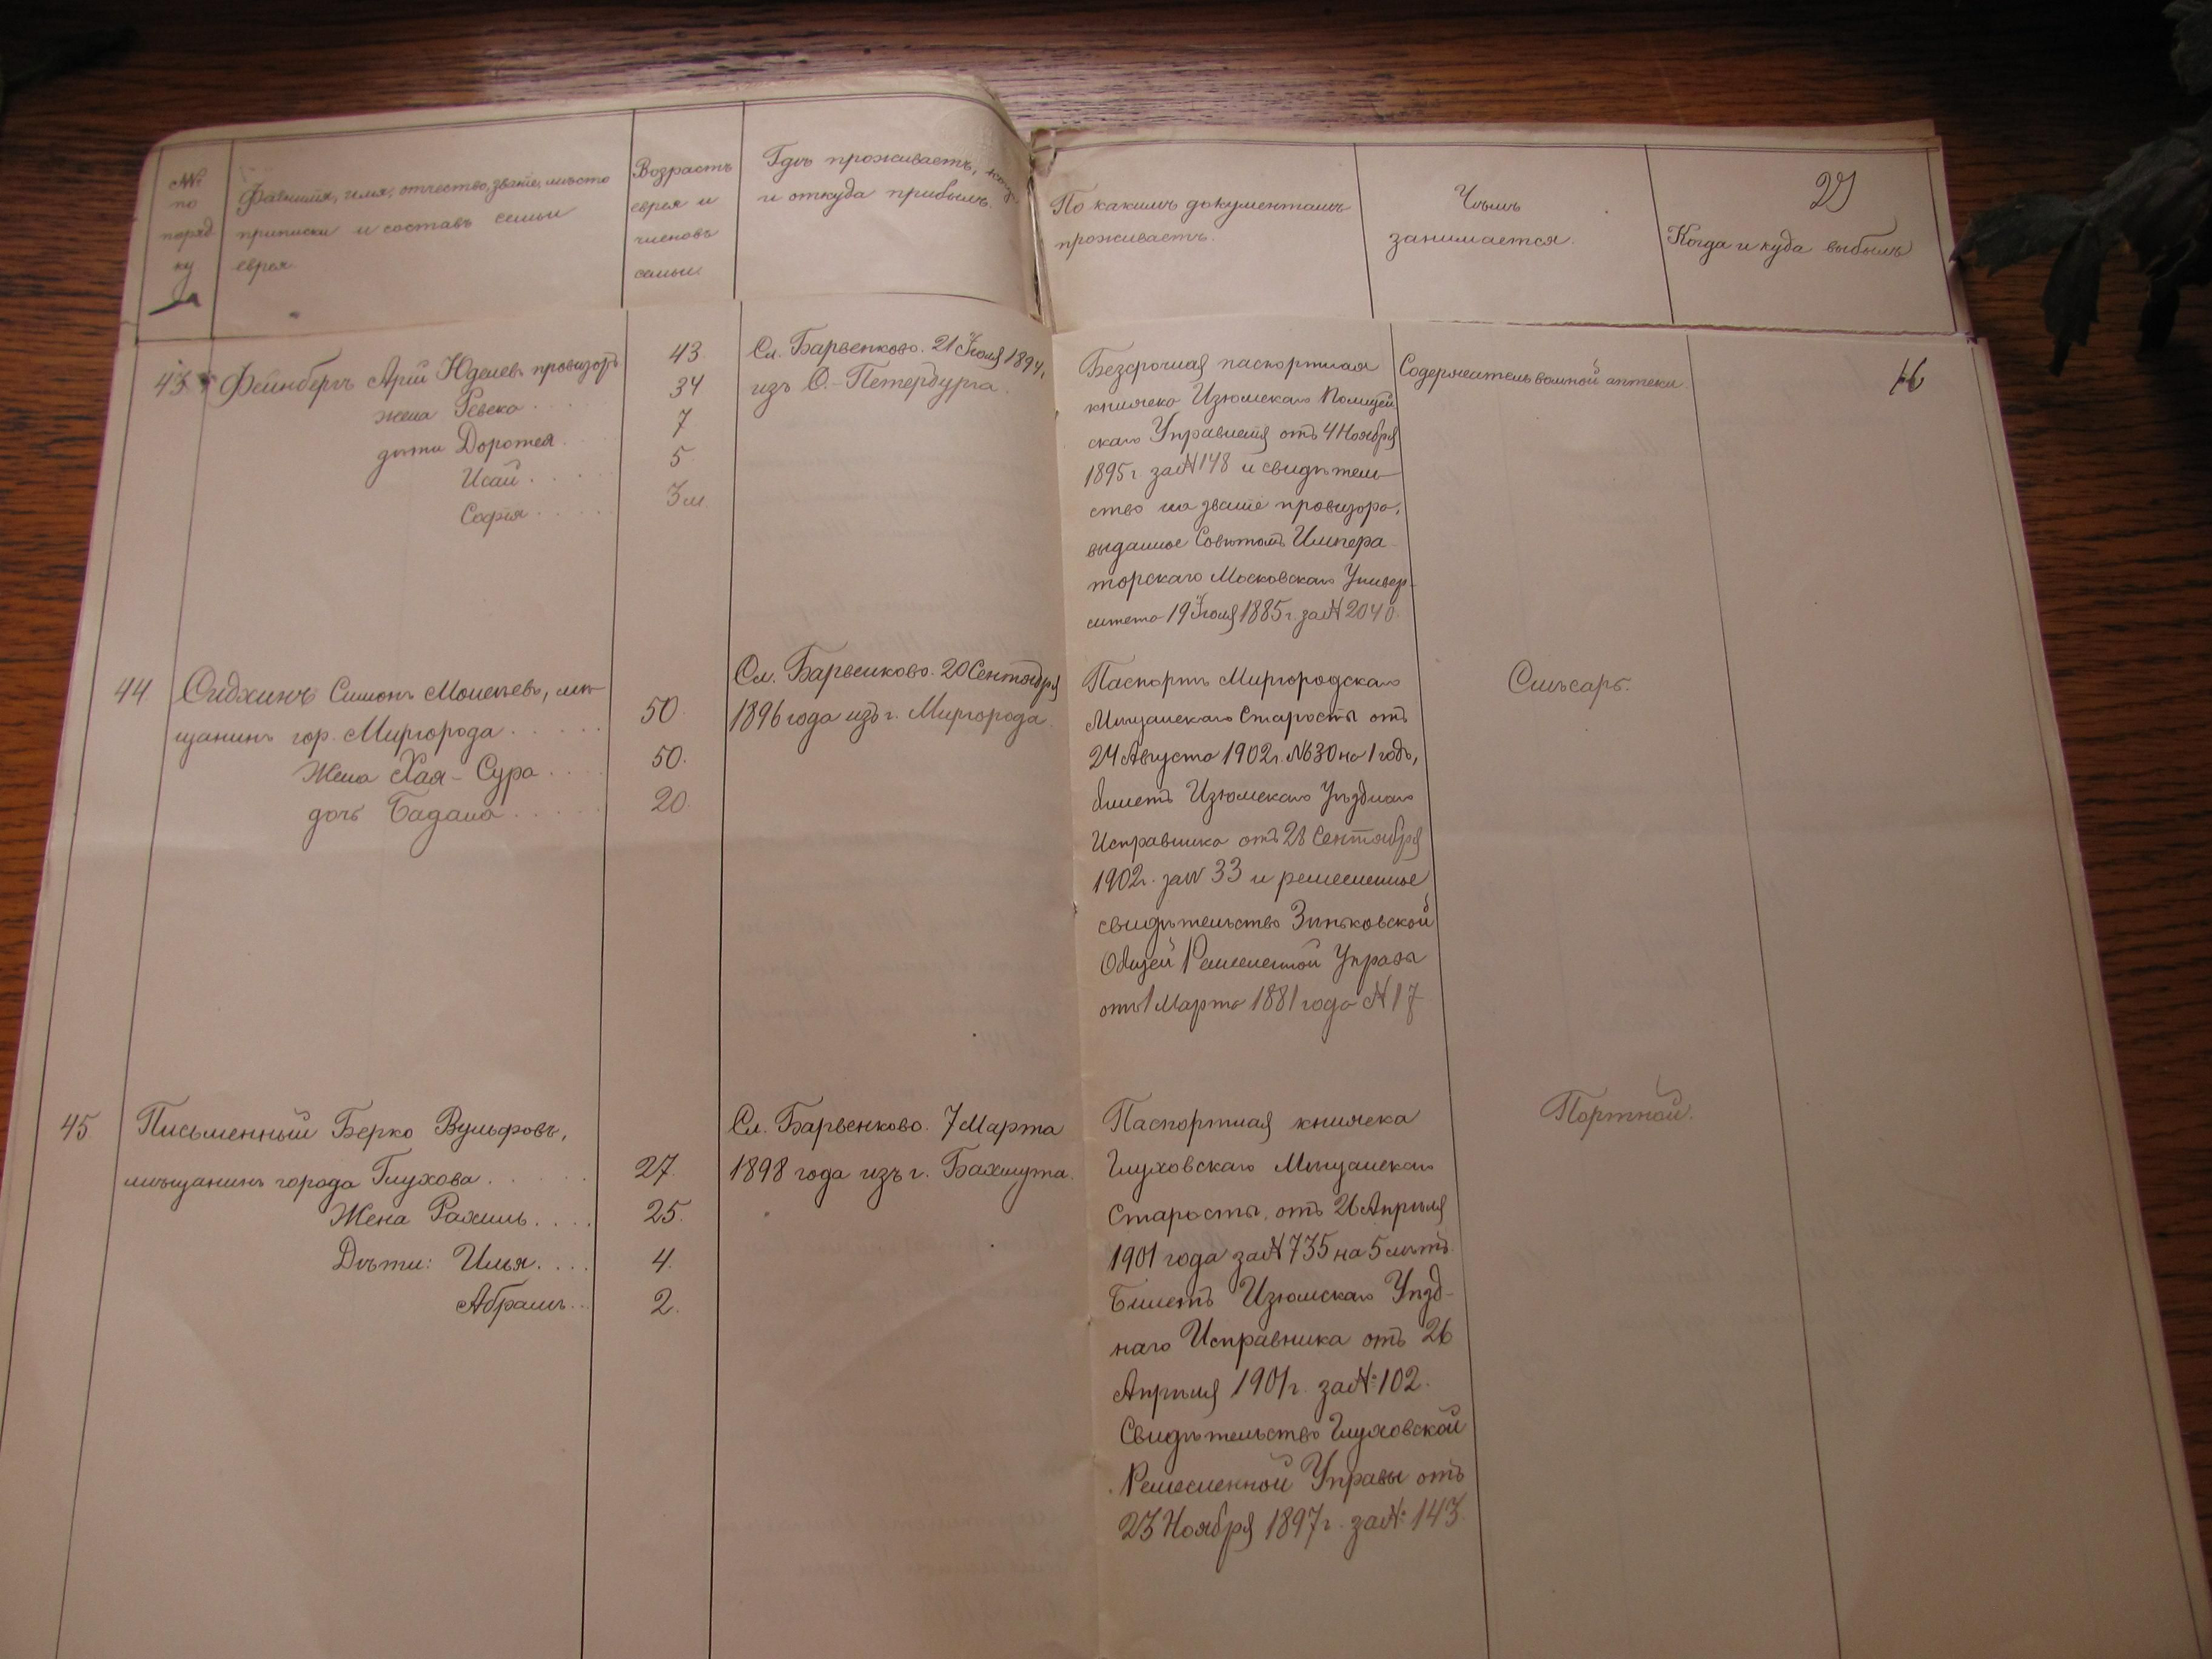 №№ по поряд ку
Фамилія, имя, отчество, званіе, мѣсто
приписки и составъ семьи
еврея.
Возрастъ
еврея и
членовъ
семьи
Гдѣ проживаетъ, когда
и откуда прибылъ.
По какимъ документамъ
проживаетъ.
Чѣмъ
занимается.
Когда и куда выбылъ
43
Фейнбергъ Арій Юделев. провизоръ
жена Ревека . . .
дѣти Доротея . . .
Исай . . . .
Софія . . . . .
43.
34
7
5.
3 м.
Сл. Барвенково. 21 Іюля 1894 г.
изъ С.-Петербурга.
Безсрочная паспортная
книжка Изюмскаго Полицей
скаго Управленія отъ 4 Ноября
1895 г. за № 148 и свидѣтель
ство на званіе провизора,
выданное Совѣтомъ Импера
торскаго Московскаго Универ-
ситета 19 Іюля 1885 г. за № 2040.
Содержатель вольной аптеки.
16
44
Симонъ Моисеевъ, мѣ
щанинъ гор. Миргорода . . . . .
Жена Хая-Сура . . .
дочь Бадана . . . . .
50.
50.
20.
Сл. Барвенково. 20 Сентября
1896 года изъ г. Миргорода.
Паспортъ Миргородскаго
Мѣщанскаго Старосты отъ
24 Августа 1902 г. № 630 на 1 годъ,
билетъ Изюмскаго Уѣзднаго
Исправника отъ 28 Сентября
1902 г. за № 33 и ремесленное
свидѣтельство Зиньковской
Общей Ремесленной Управы
отъ 1 Марта 1881 года № 17
Слѣсарь.
45.
Письменный Берко Вульфовъ,
мѣщанинъ города Глухова . . . . .
Жена Рахиль . . . .
Дѣти: Илья . . . .
Абрамъ . . .
27.
25.
4.
2.
Сл. Барвенково. 7 Марта
1898 года изъ г. Бахмута.
Паспортная книжка
Глуховскаго Мѣщанскаго
Старосты, отъ 26 Апрѣля
1901 года за № 735 на 5 лѣтъ.
Билетъ Изюмскаго Уѣзд-
наго Исправника отъ 26
Апрѣля 1901 г. за № 102.
Свидѣтельство Глуховской
Ремесленной Управы отъ
23 Ноября 1897 г. за № 143.
Портной.